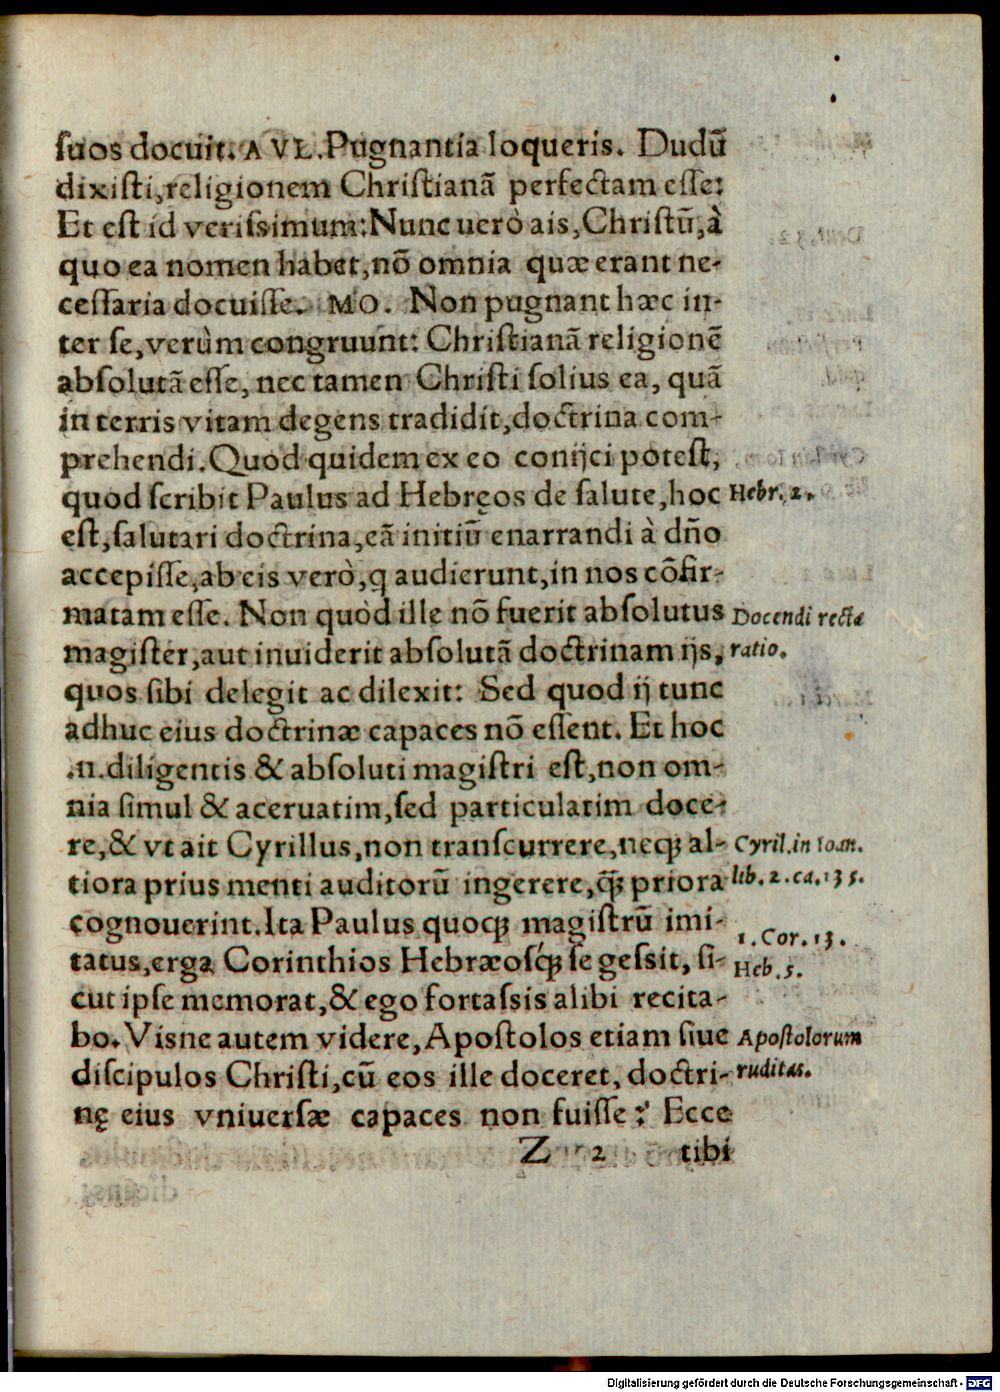 ſuos docuit. AVL. Pugnantia loqueris. Dudũ
dixiſti, religionem Chriſtianã perfectam eſſe:
Et eſt id veriſsimum: Nunc uerò ais, Chriſtũ, à
quo ea nomen habet, nõ omnia quæ erant ne-
ceſſaria docuiſſe. MO. Non pugnant hæc in-
ter ſe, verùm congruunt: Chriſtianã religionẽ
abſolutã eſſe, nec tamen Chriſti ſolius ea, quã
in terris vitam degens tradidit, doctrina com-
prehendi. Quod quidem ex eo conijci poteſt,
quod ſcribit Paulus ad Hebręos de ſalute, hoc
Hebr. 2.
eſt, ſalutari doctrina, eã initiũ enarrandi à dño
accepiſſe, ab eis verò, q audierunt, in nos cõfir-
matam eſſe. Non quòd ille nõ fuerit abſolutus
Docendi recta
magiſter, aut inuiderit abſolutã doctrinam ijs,
ratio.
quos ſibi delegit ac dilexit: Sed quod ij tunc
adhuc eius doctrinæ capaces nõ eſſent. Et hoc
.n. diligentis & abſoluti magiſtri eſt, non om-
nia ſimul & aceruatim, ſed particulatim doce-
re, & vt ait Cyrillus, non tranſcurrere, neqꝫ al-
Cyril. in Ioan.
tiora prius menti auditorũ ingerere, q̃ꝫ priora
lib. 2. ca. 135.
cognouerint. Ita Paulus quoqꝫ magiſtrũ imi-
1. Cor. 13.
tatus, erga Corinthios Hebræosq́ꝫ ſe geſsit, ſi-
Heb. 5.
cut ipſe memorat, & ego fortaſsis alibi recita-
bo. Viſne autem videre, Apoſtolos etiam ſiue
Apoſtolorum
diſcipulos Chriſti, cũ eos ille doceret, doctri-
ruditas.
nę eius vniuerſæ capaces non fuiſſe? Ecce
Z 2 tibi
Digitalisierung gefördert durch die Deutsche Forschungsgemeinschaft - DFG